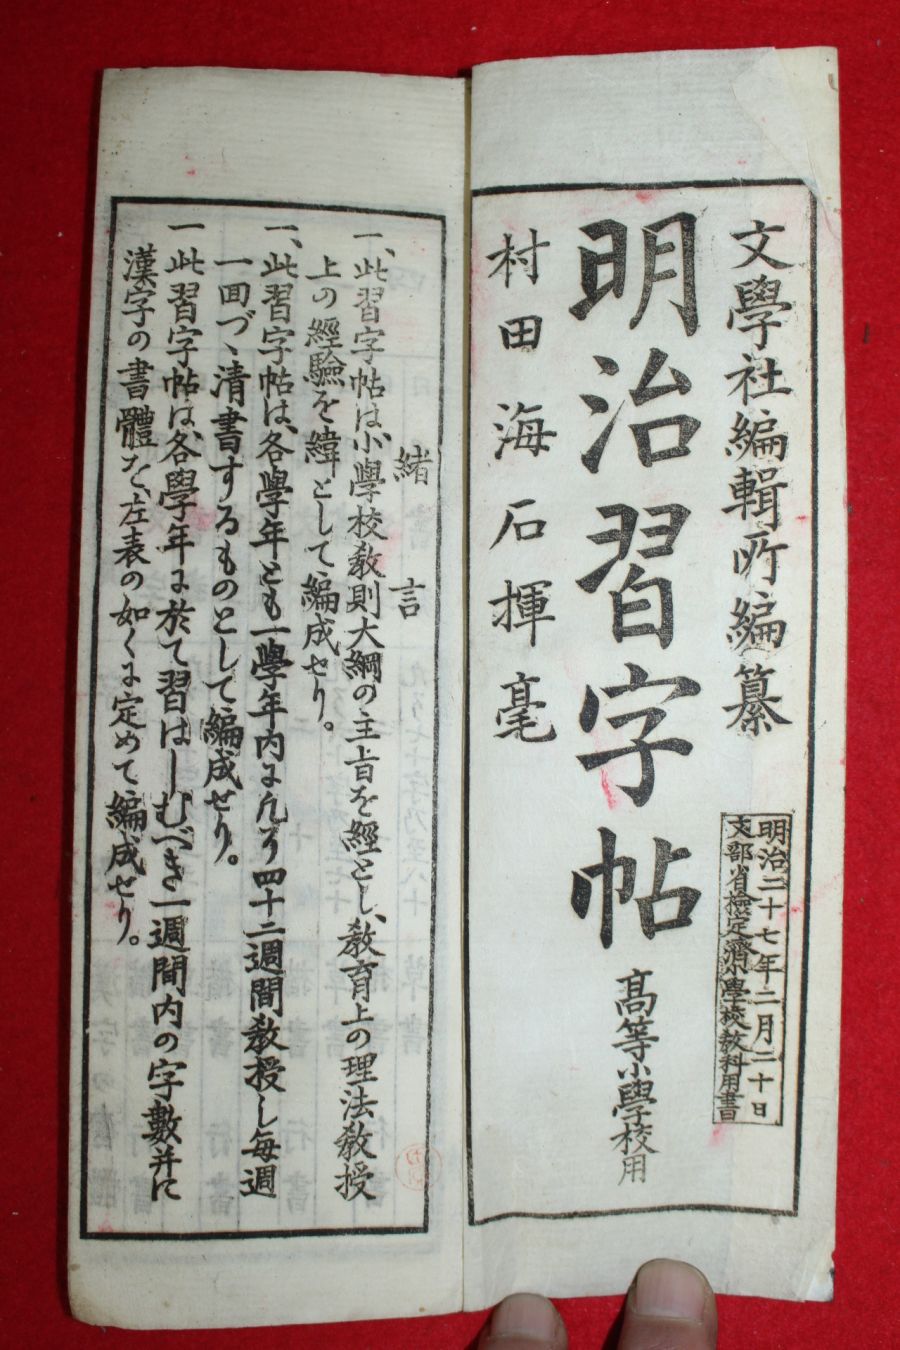 文學社編輯所編纂
明治二十七年二月二十日
文部省檢定濟小學校敎科用書
明治習字帖
高等小學校用
村田海石揮毫
緒言
一、此習字帖は、小學校敎則大綱の主旨を經とし、敎育上の理法敎授
上の經驗を緯として編成せり。
一、此習字帖は、各學年とも一學年內に凡そ四十二週間敎授し每週
一回づゝ清書するものとして編成せり。
一此習字帖は、各學年に於て習はしむべき一週間內の字數并に
漢字の書體を、左表の如くに定めて編成せり。